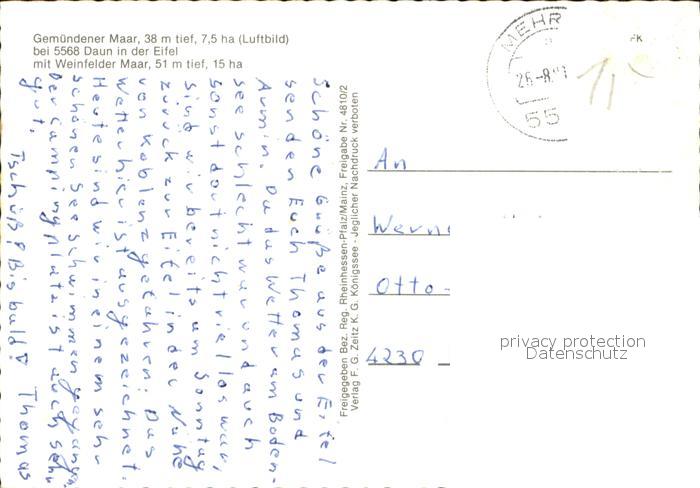 Gemündener Maar, 38 m tief, 7,5 ha (Luftbild)
bei 5568 Daun in der Eifel
mit Weinfelder Maar, 51 m tief, 15 ha
Schöne Grüße aus der Eifel
senden Euch Thomas und
Armin. Da das Wetter am Boden-
see schlecht war und auch
sonst dort nicht viel los war,
sind wir bereits am Sonntag
zurück zur Eifel in der Nähe
von Koblenz gefahren. Das
Wetter hier ist ausgezeichnet.
Heute sind wir in einem sehr
schönen See schwimmen gegangen.
Der Campingplatz ist auch sehr
gut. Tschüß! Bis bald! Thomas
Freigegeben Bez. Reg. Rheinhessen-Pfalz/Mainz, Freigabe Nr. 4810/2
Verlag F. G. Zeitz K. G. Königssee - Jeglicher Nachdruck verboten
MEHR
26-8.
55
FK
An
Werne
Otto-
4230
privacy protection
Datenschutz